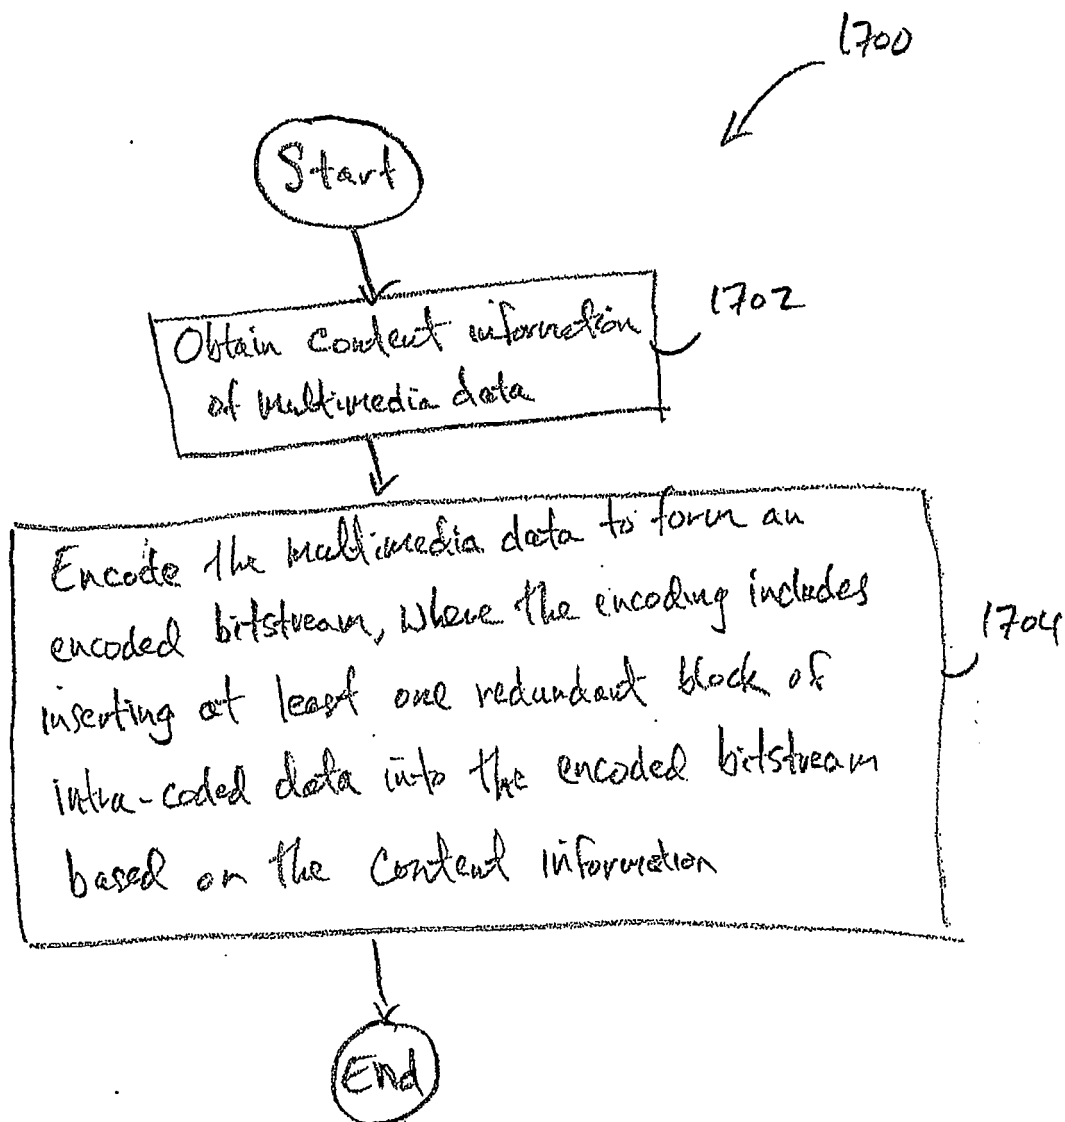 1700
Start
Obtain content information
1702
of multimedia data
Encode the multimedia data to form an
encoded bitstream, where the encoding includes
1704
inserting at least one redundant block of
intra-coded data into the encoded bitstream
based on the content information
End